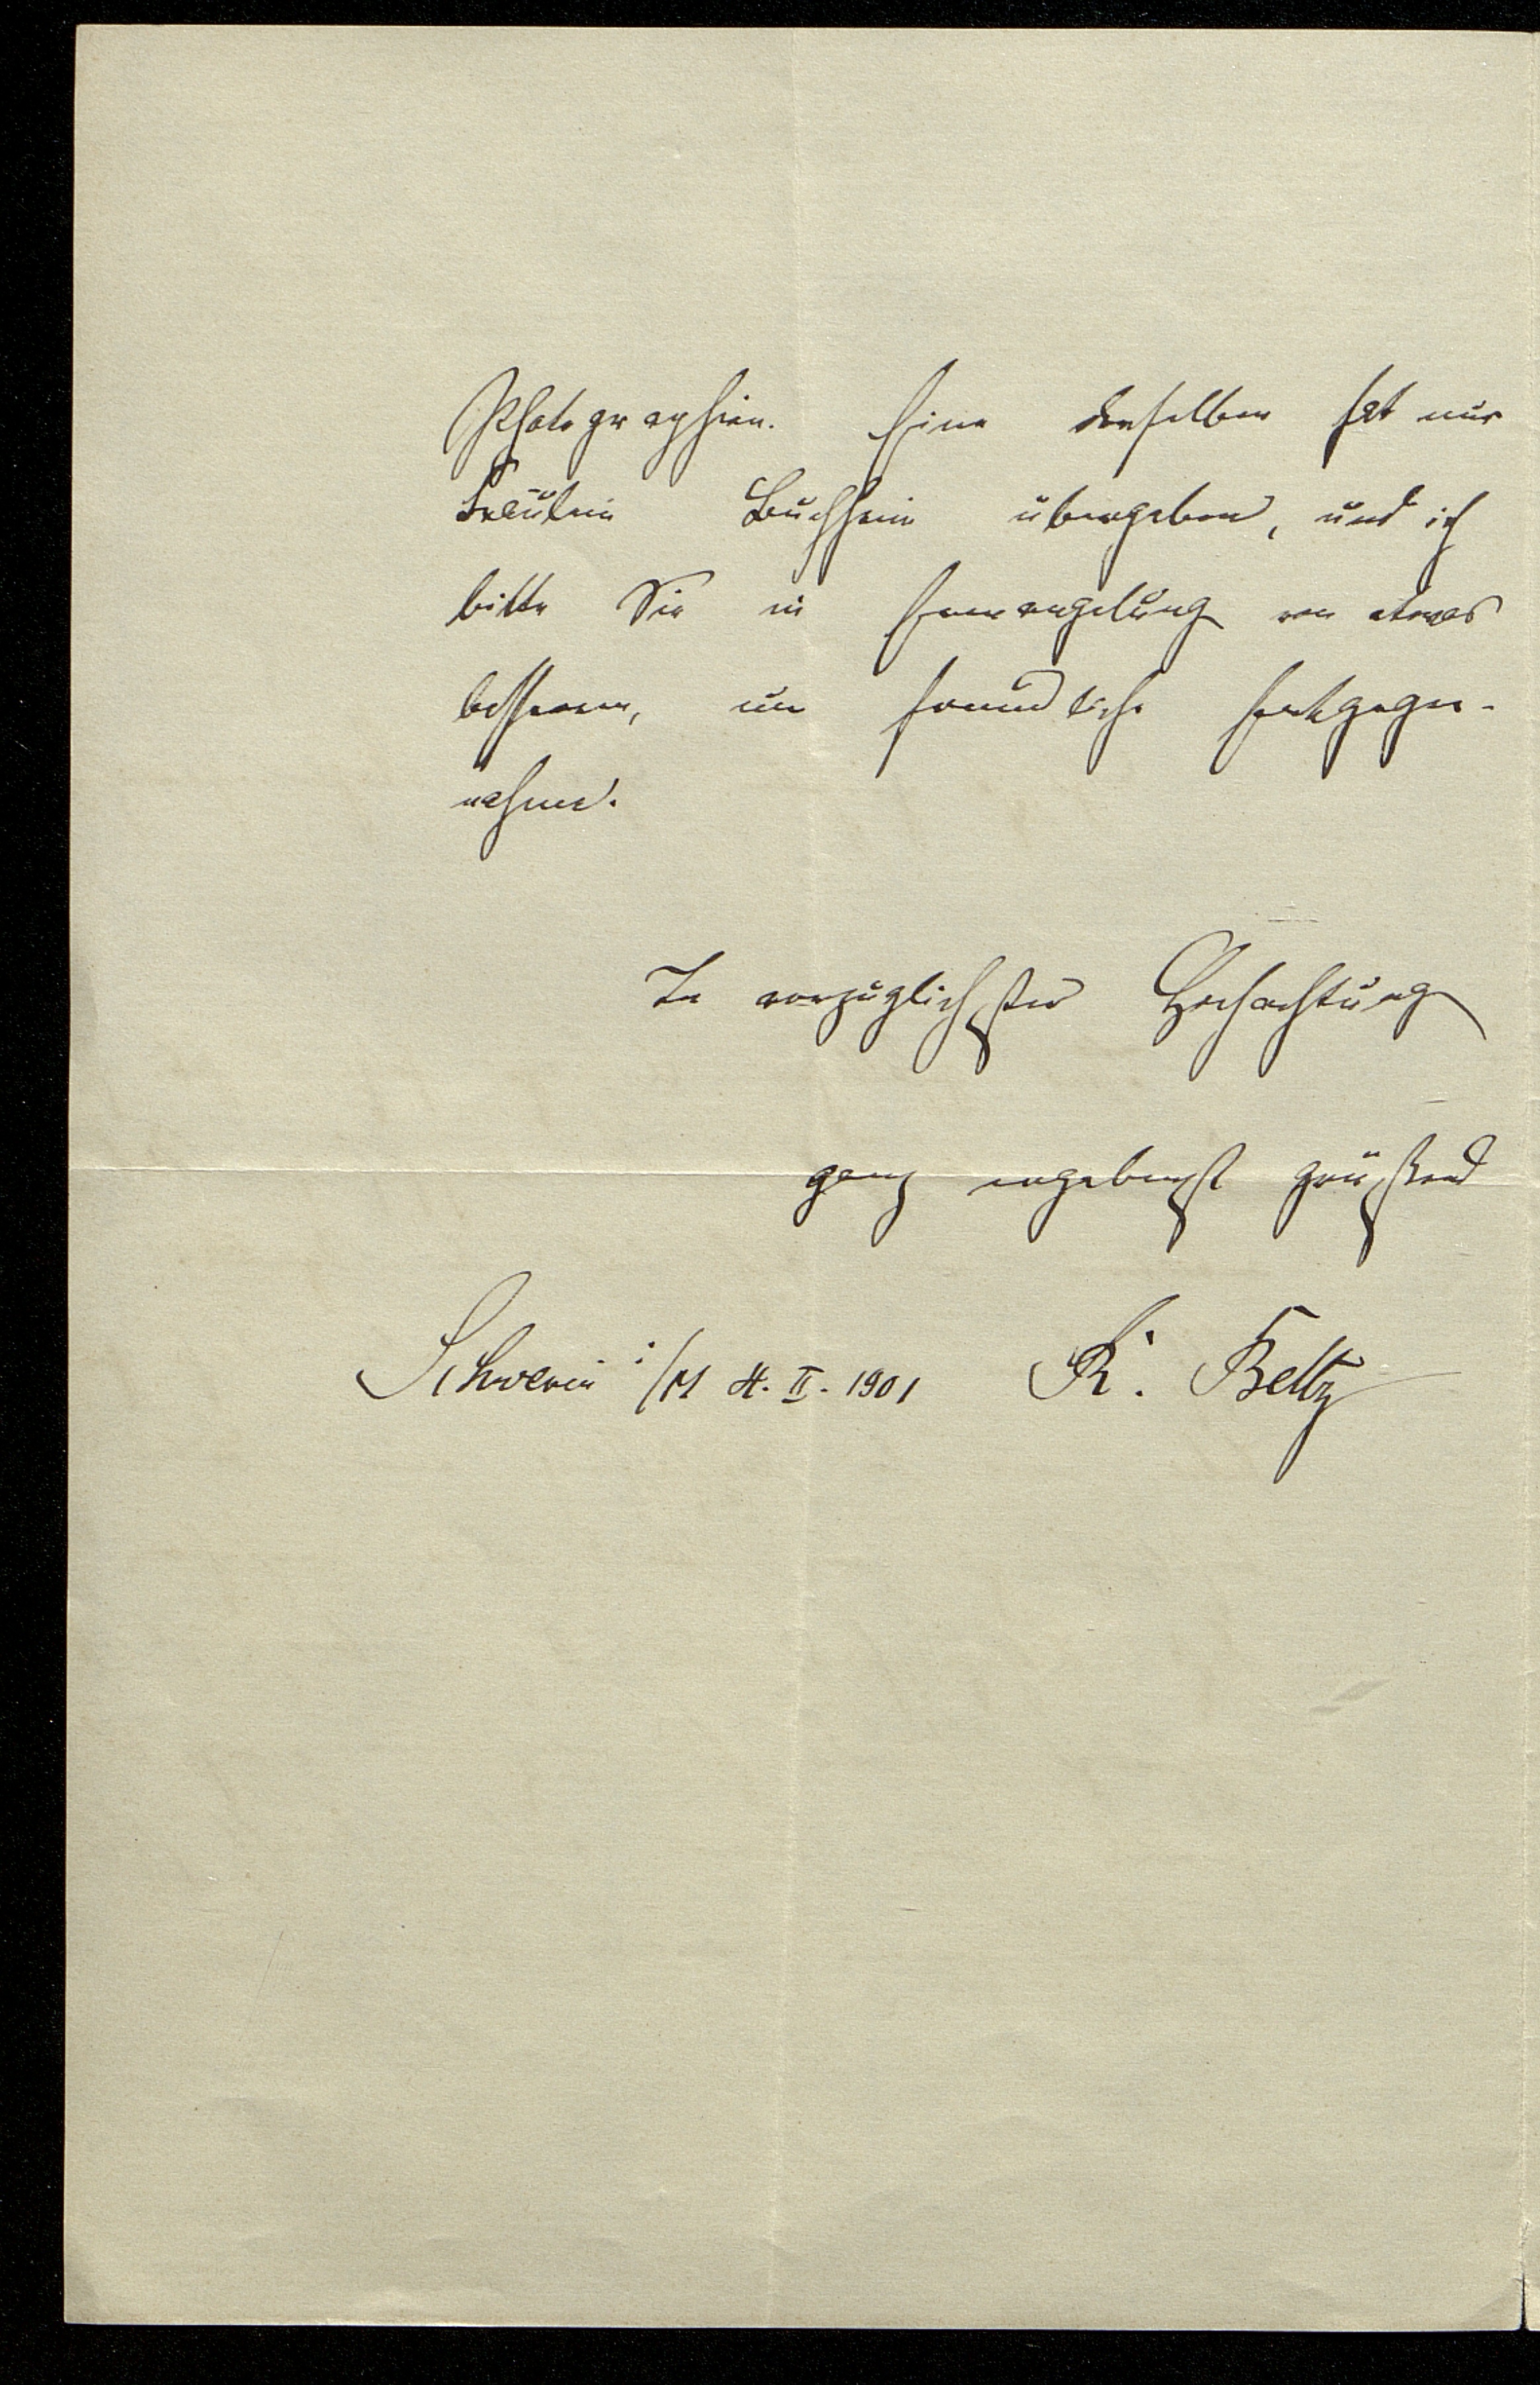 Photographien. Eine derselben hat mir
Fräulein Buchheim übergeben, und ich
bitte Sie in Ermangelung von etwas
besserem, um freundliche Entgegen-
nahme.
In vorzüglichster Hochachtung
ganz ergebenst grüßend
Schwerin i/M 4. II. 1901 R. Beltz